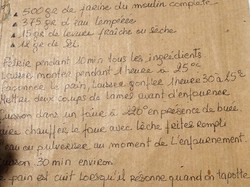 500 gr de farine du moulin complète
375 gr d'eau tempérée
15 gr de levure fraîche ou sèche
12 gr de sel
Pétrir pendant 10 min tous les ingrédients
laisser monter pendant 1 heure à 25°C
Façonner le pain, laisser gonfler 1 heure 30 à 25°C
Mettre deux coups de lames avant d'enfournement
Cuisson dans un four à 220° en présence de buée
faire chauffer le four avec lèche frites rempli
eau ou pulvériser au moment de l'enfournement.
Cuisson 30 min environ
pain est cuit lorsqu'il résonne quand on tapote